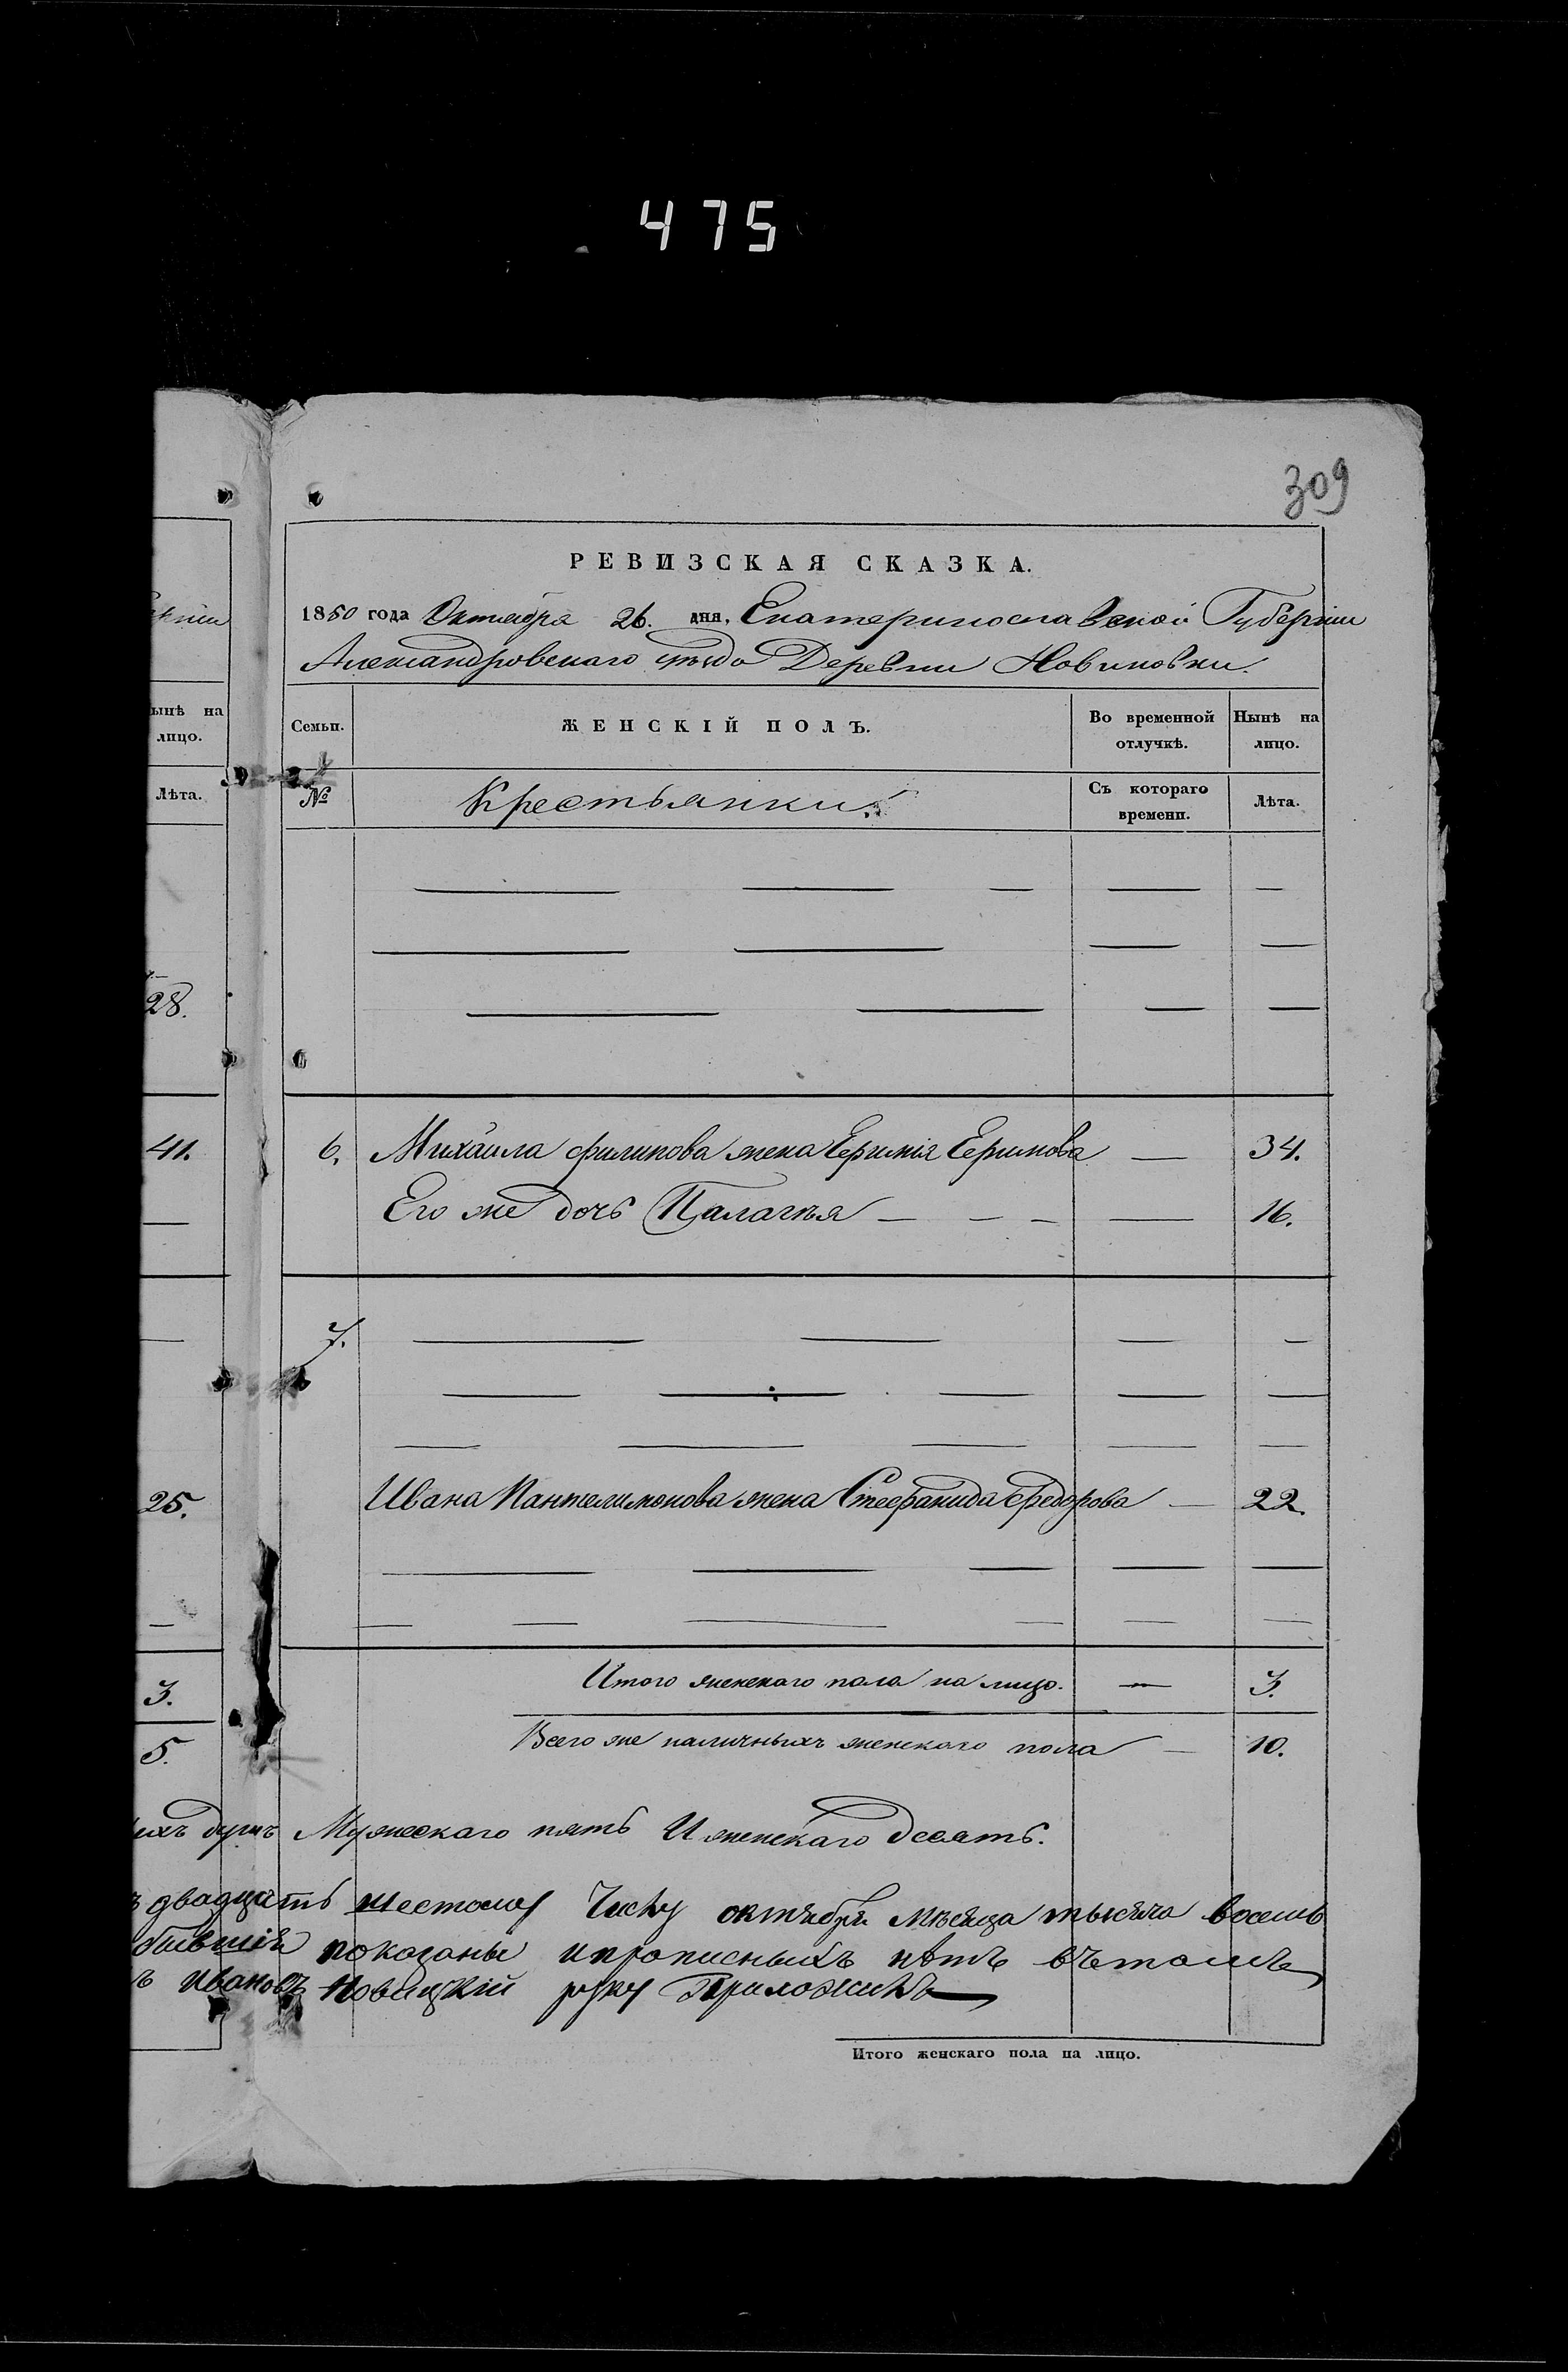 475
309
РЕВИЗСКАЯ СКАЗКА.
1850 года Октября 26. дня, Екатеринославской Губерніи
Александровскаго уѣзда Деревни Новиковки.
ынѣ на лицо.
Семьи. ЖЕНСКІЙ ПОЛЪ. Во временной отлучкѣ. Нынѣ на лицо.
Лѣта.
№ Крестьянки: Съ котораго времени. Лѣта.
28.
41.
6. Михаила филипова жена Ефимія Ефимова — 34.
Его же дочь Палагѣя — — — — 16.
7.
25.
Ивана Пантелимонова жена Стефанида Федорова — 22.
3.
Итого женскаго пола на лицо. — 3.
5.
Всего же наличныхъ женскаго пола — 10.
душъ Мужескаго пять И женскаго десять.
двадцать шестому Числу октября мѣсяца тысяча восемь
показаны и прописныхъ нѣтъ въ томъ
Ивановъ Новицкій руку Приложилъ
Итого женскаго пола на лицо.